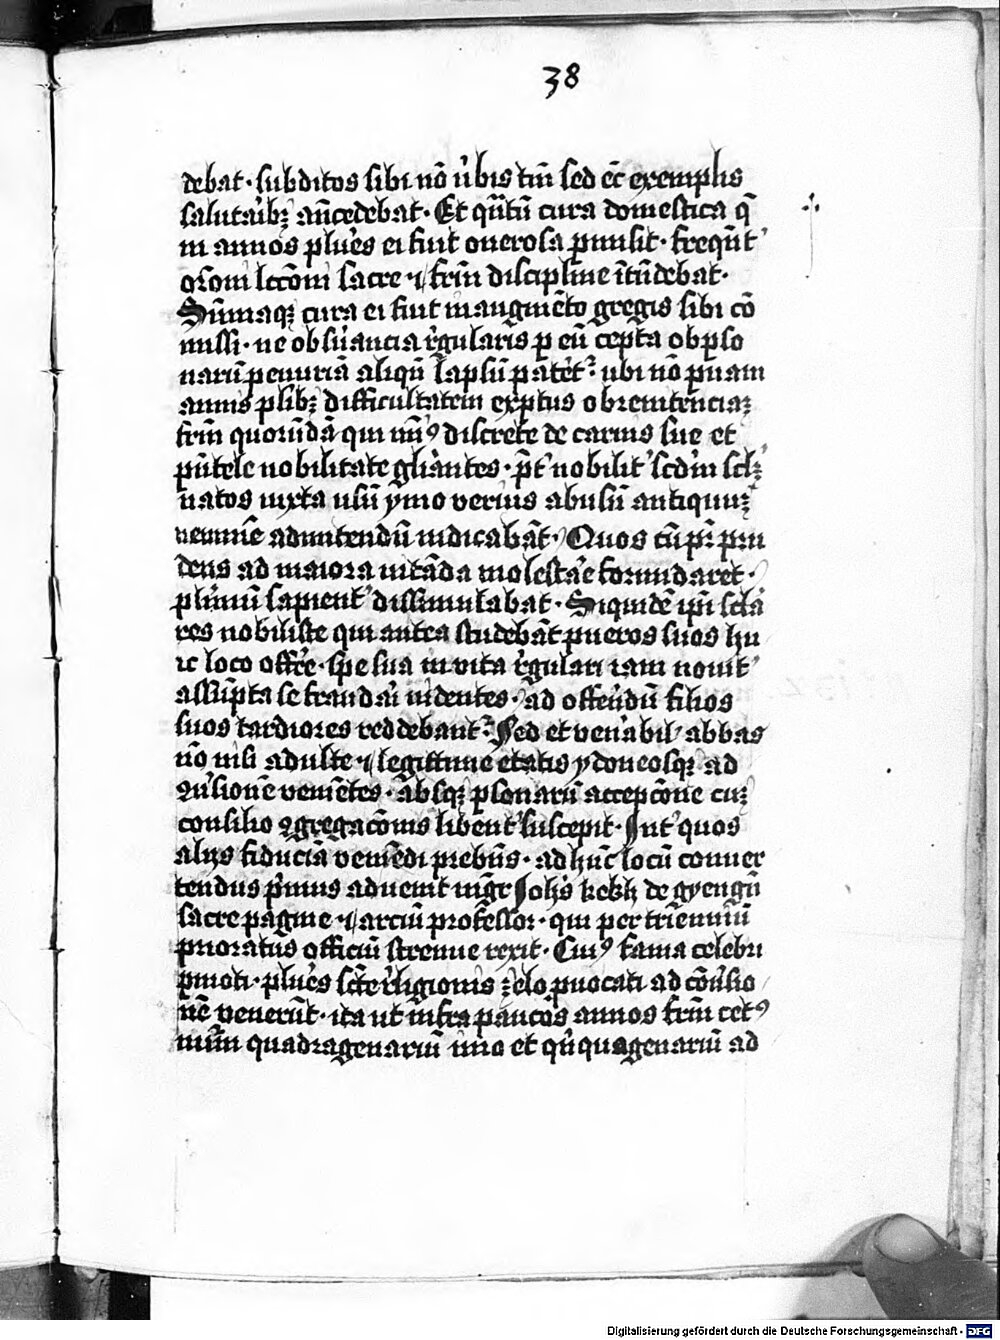 38
debat · subditos sibi nō v̉bis tm̄ sed ec̄ exemplis
salutaribꝫ an̄cedebat · Et qn̄tū cura domestica q̄
in annos plur̉es ei fuit onerosa p̄misit · frequēt᷑
or̄oni lcc̄oni sacre · ⁊ frm̄ discipline īt̄ndebat ·
Sūmaqꝫ cura ei fuit in augmēto gregis sibi cō
missi · ne obsẻruancia rẻgularis p eū cepta ob pẻso
nariū penuriā aliqn̄ lapsū patẻt᷑ : ubi nō p̄uam
annis plẻibꝫ difficultatem exptus ob renitēciaꝫ
frm̄ quorūdā qui min᷒ discrete de carnis sue et
pn̄tele nobilitate gliāntes · pr̄t᷑ nobilit᷑ scdm̄ sclꝫ
natos iuxta usū ymo verius abusū antiquuꝫ
neminē admittendū iudicabāt · Quos cū pr̄ pru
dens ad maiora vitāda molestar̉e formidaret ·
plurimū sapient᷑ dissimulabat · Siquidē ipi̅ scl̄a
res nobiliste qui antea studebāt pueros suos hu
ic loco offẻre · spe sua in vita rẻgulari iam novit᷑
assūpta se fraudari videntes · ad offerẻdū filios
suos tardiores reddebant᷑ : Sed et venẻabil᷑ abbas
nō nisi adulte ⁊ legittime etatis ydoneosqꝫ ad
ꝯuẻsionē veniētes · absqꝫ pẻsonarū accepc̄one cuꝫ
consilio ꝯgregac̄onis libent᷑ suscepit · Int᷑ quos
alijs fiduciā veniēdi prebēs · ad hūc locū conuer
tendus pẻmus advenit mgr̄ Johs̄ kekh de gyengn̄
sacre pagine ⁊ arciū professor · qui per trienniū
prioratus officiū strenue rexit · Cui᷒ fama celebri
pẻmoti · plurẻs scẻte rẻligionis zelo pẻuocati ad cōuẻsio
nē venerūt · ita ut infra paucos annos frm̄ cet᷒
numm̄ quadragenariū imo et qn̄quagenariū ad
Digitalisierung gefördert durch die Deutsche Forschungsgemeinschaft - DFG